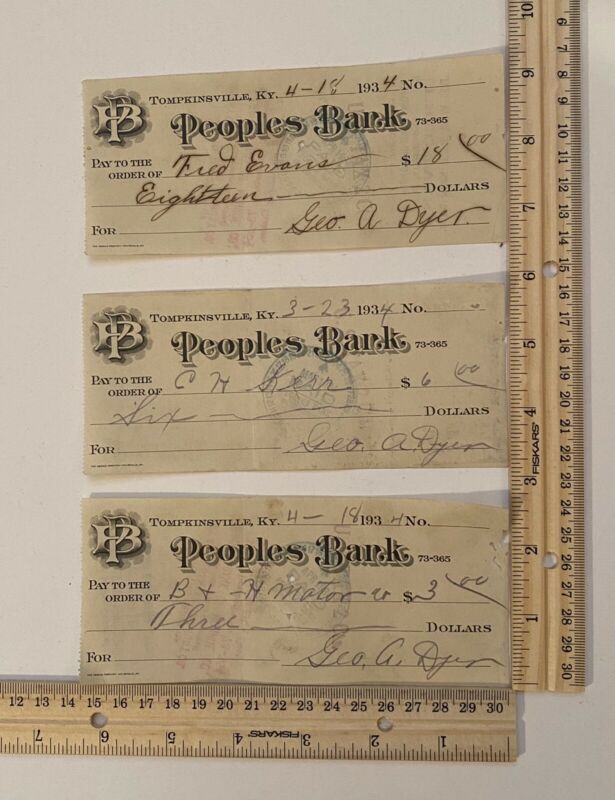 TOMPKINSVILLE, KY. 4-18 1934 No.
PB
Peoples Bank 73-365
PAY TO THE
ORDER OF Fred Evans $ 18 00
Eighteen DOLLARS
FOR Geo. A Dyer.
TOMPKINSVILLE, KY. 3-23 1934 No.
PB
Peoples Bank 73-365
PAY TO THE
ORDER OF C H Kerr $ 6 00
Six DOLLARS
FOR Geo. A. Dyer
TOMPKINSVILLE, KY. 4-18 1934 No.
PB
Peoples Bank 73-365
PAY TO THE
ORDER OF B + H Motor co $ 3 00
Three DOLLARS
FOR Geo. A. Dyer
10 9 8 7 6 5 4 3 2 1
FISKARS
6 7 8 9 10 11 12 13 14 15 16 17 18 19 20 21 22 23 24 25 26 27 28 29 30
12 13 14 15 16 17 18 19 20 21 22 23 24 25 26 27 28 29 30
7 6 5 4 3 2 1
FISKARS